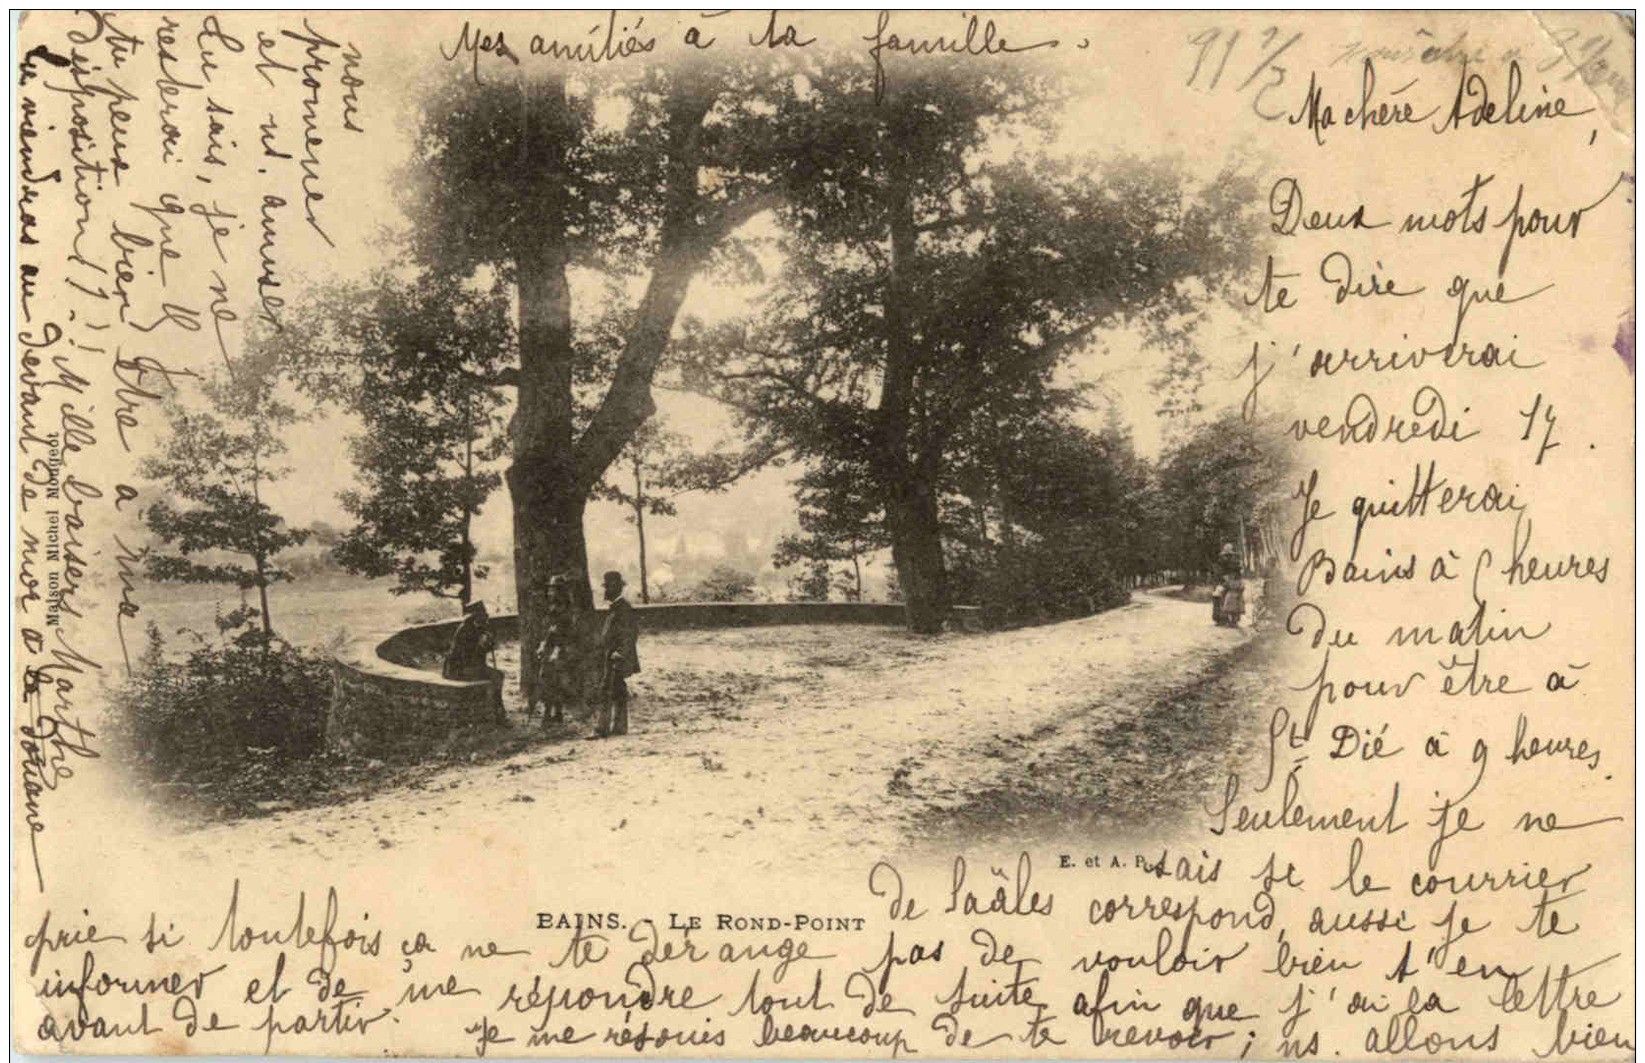 Mes amitiés à ta famille.
Ma chère Adeline,
Deux mots pour
te dire que
j'arriverai
vendredi 17.
Je quitterai
Bains à 6 heures
du matin
pour être à
St Dié à 9 heures.
Seulement je ne
sais si le courrier
de Saâles correspond, aussi je te
prie si toutefois ça ne te dérange pas de vouloir bien t'en
informer et de me répondre tout de suite afin que j'ai la lettre
avant de partir. Je me réjouis beaucoup de te revoir; ns. allons bien
nous
promener
et ns. amuser
Tu sais, je ne
resterai que 8
tu peux bien être à ma
disposition!?!! Mille baisers Marthe
tu viendras au devant de moi à la douane
Maison Michel
E. et A.
BAINS. - LE ROND-POINT